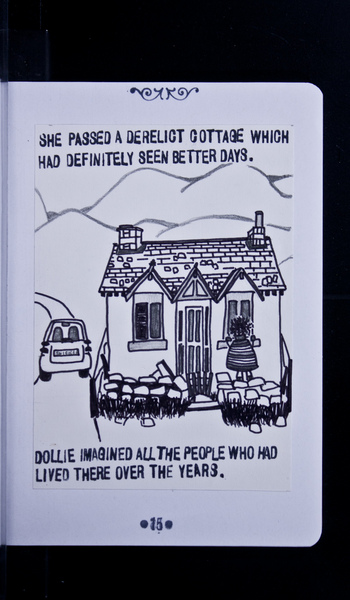 SHE PASSED A DERELICT COTTAGE WHICH
HAD DEFINITELY SEEN BETTER DAYS.
DOLLIE IMAGINED ALL THE PEOPLE WHO HAD
LIVED THERE OVER THE YEARS.
15